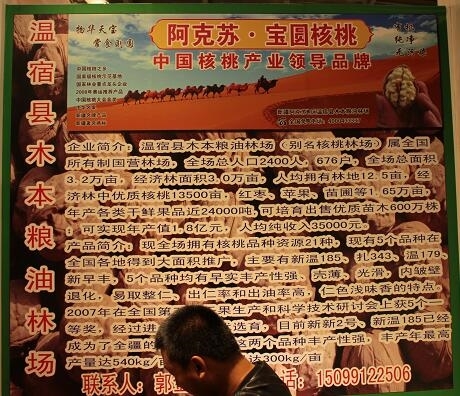 物华天宝
阿克苏·宝圆核桃
中国核桃产业领导品牌
中国核桃之乡
温宿县木本粮油林场
企业简介:温宿县木本粮油林场(别名核桃林场)属全国
所有制国营林场,全场总人口2400人,676户,全场总面积
3.2万亩,经济林面积3.0万亩,人均拥有林地12.5亩,经
济林中优质核桃13500亩,红枣、苹果、苗圃等1.65万亩,
年产各类干鲜果品近24000吨,可培育出售优质苗木600万株
,可实现年产值1.8亿元,人均纯收入35000元。
产品简介:现全场拥有核桃品种资源21种,现有5个品种在
全国各地得到大面积推广,主要有新温185、扎343、温179、
新早丰,5个品种均有早实丰产性强、壳薄、光滑、内皱壁
退化、易取整仁、出仁率和出油率高,仁色浅味香的特点,
2007年在全国第 果生产和科学技术研讨会上获5个一
等奖,经过进 选育,目前新新2号、新温185已经
成为了全疆的 这两个品种丰产性强,丰产年最高
产量达540kg/亩 达300kg/亩
联系人:郭 话:15099122506